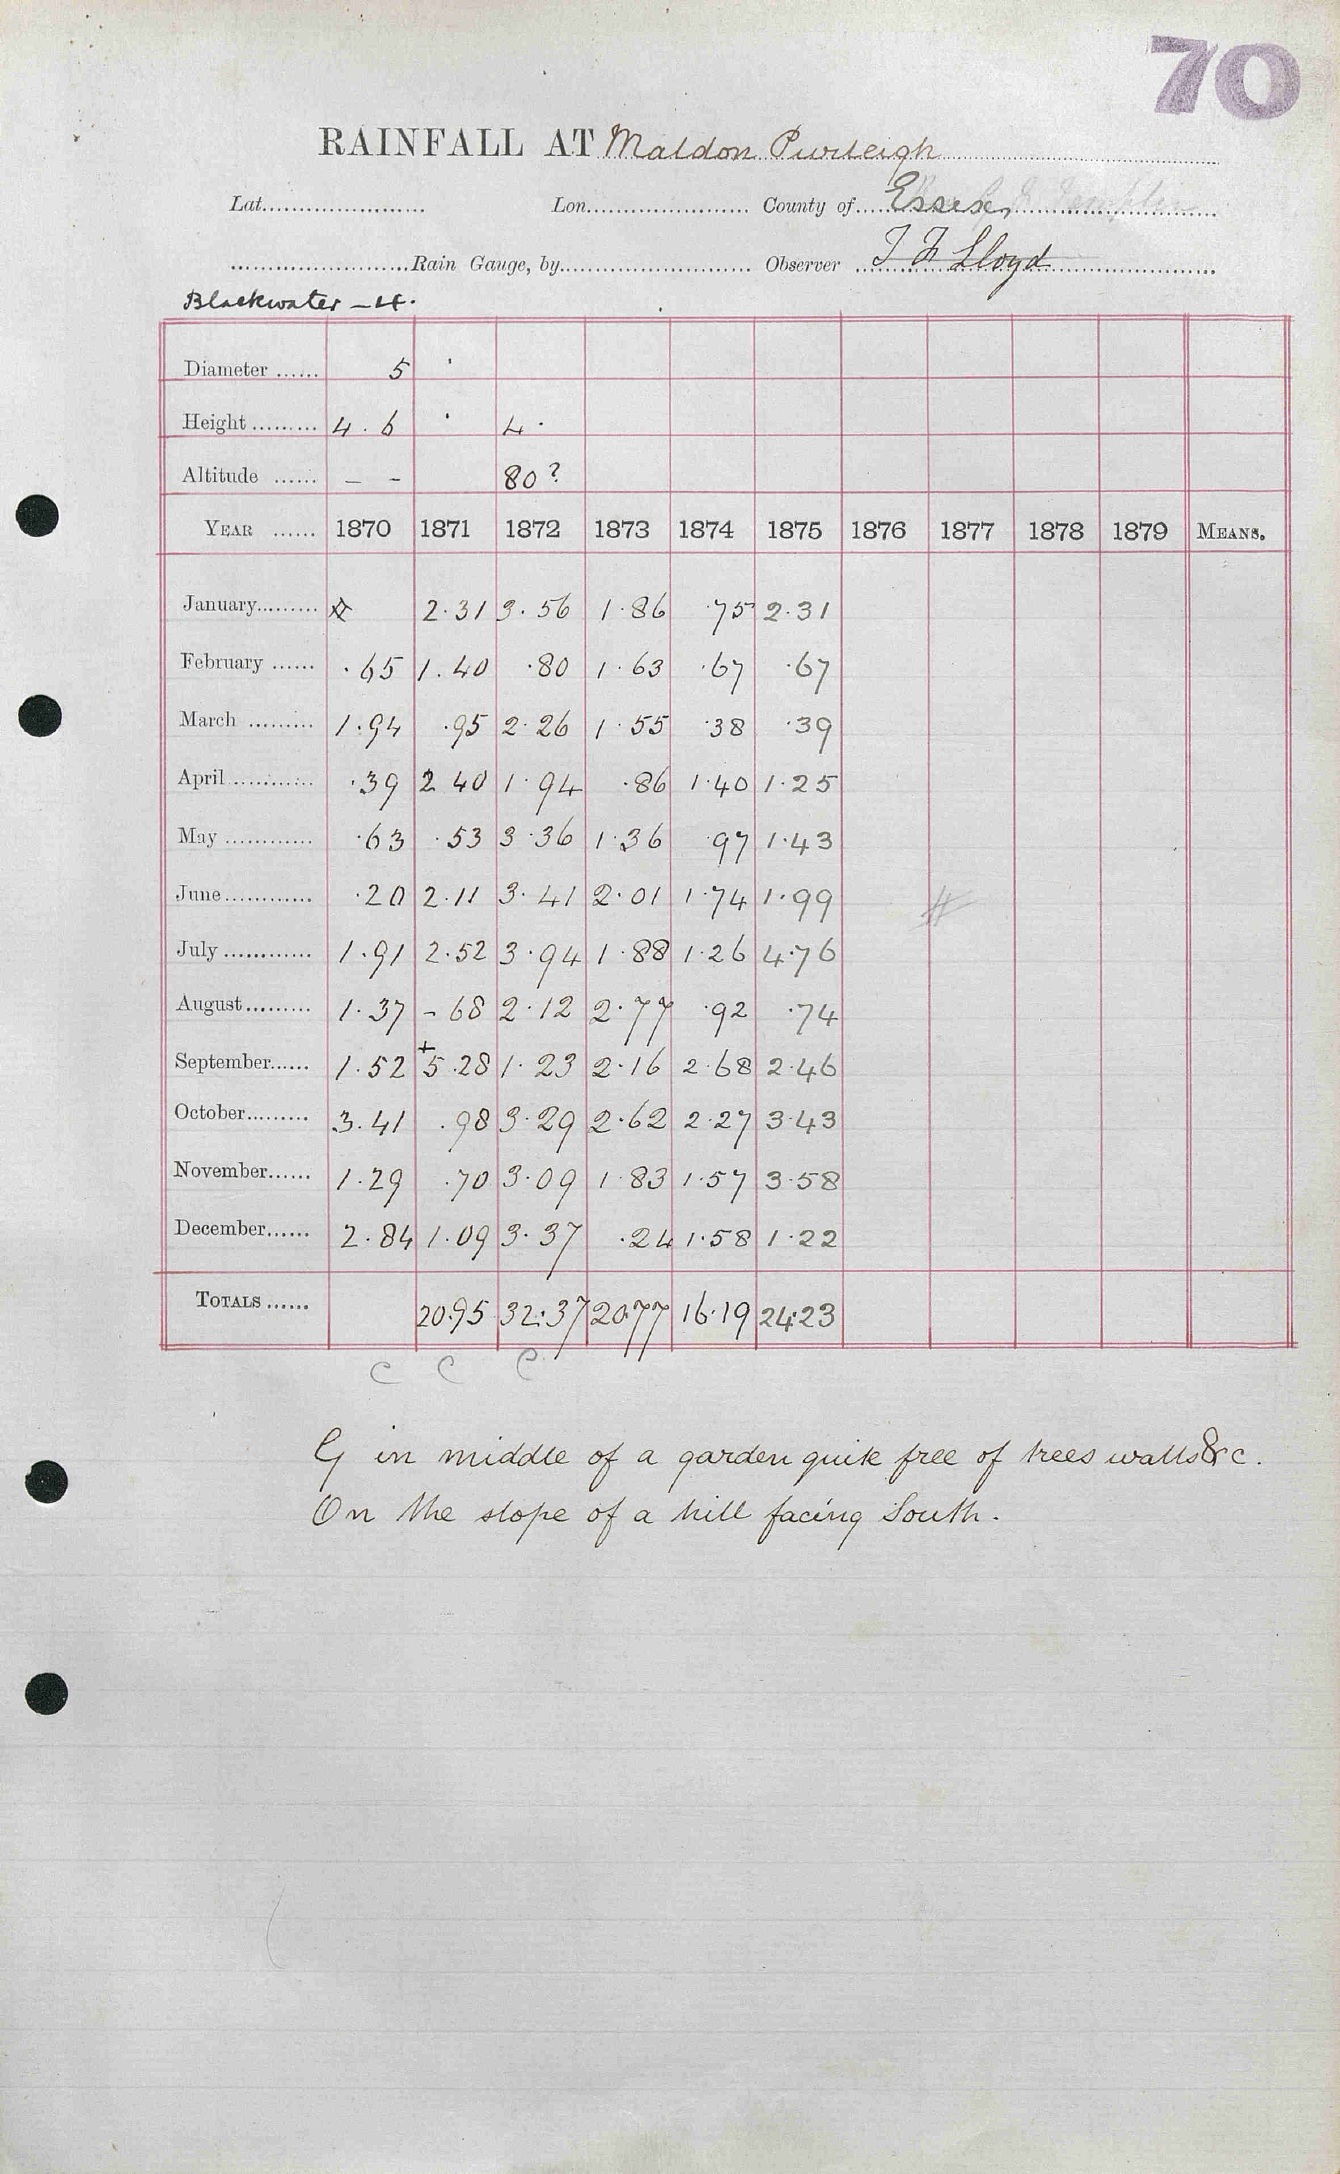 70
RAINFALL AT Maldon Purleigh
Lat. Lon. County of Essex
Rain Gauge, by Observer J F Lloyd
Blackwater – 4.
Diameter 5
Height 4 . 6 4 .
Altitude – – 80 ?
YEAR 1870 1871 1872 1873 1874 1875 1876 1877 1878 1879 MEANS.
January 2.31 3.56 1.86 .75 2.31
February .65 1.40 .80 1.63 .67 .67
March 1.94 .95 2.26 1.55 .38 .39
April .39 2 40 1.94 .86 1.40 1.25
May .63 .53 3.36 1.36 .97 1.43
June .20 2.11 3.41 2.01 1.74 1.99
July 1.91 2.52 3.94 1.88 1.26 4.76
August 1.37 - 68 2.12 2.77 .92 .74
September 1.52 +5.28 1.23 2.16 2.68 2.46
October 3.41 .98 3.29 2.62 2.27 3.43
November 1.29 .70 3.09 1.83 1.57 3.58
December 2.84 1.09 3.37 .24 1.58 1.22
TOTALS 20.95 32.37 20.77 16.19 24.23
C C C
G in middle of a garden quite free of trees walls &c.
On the slope of a hill facing South.